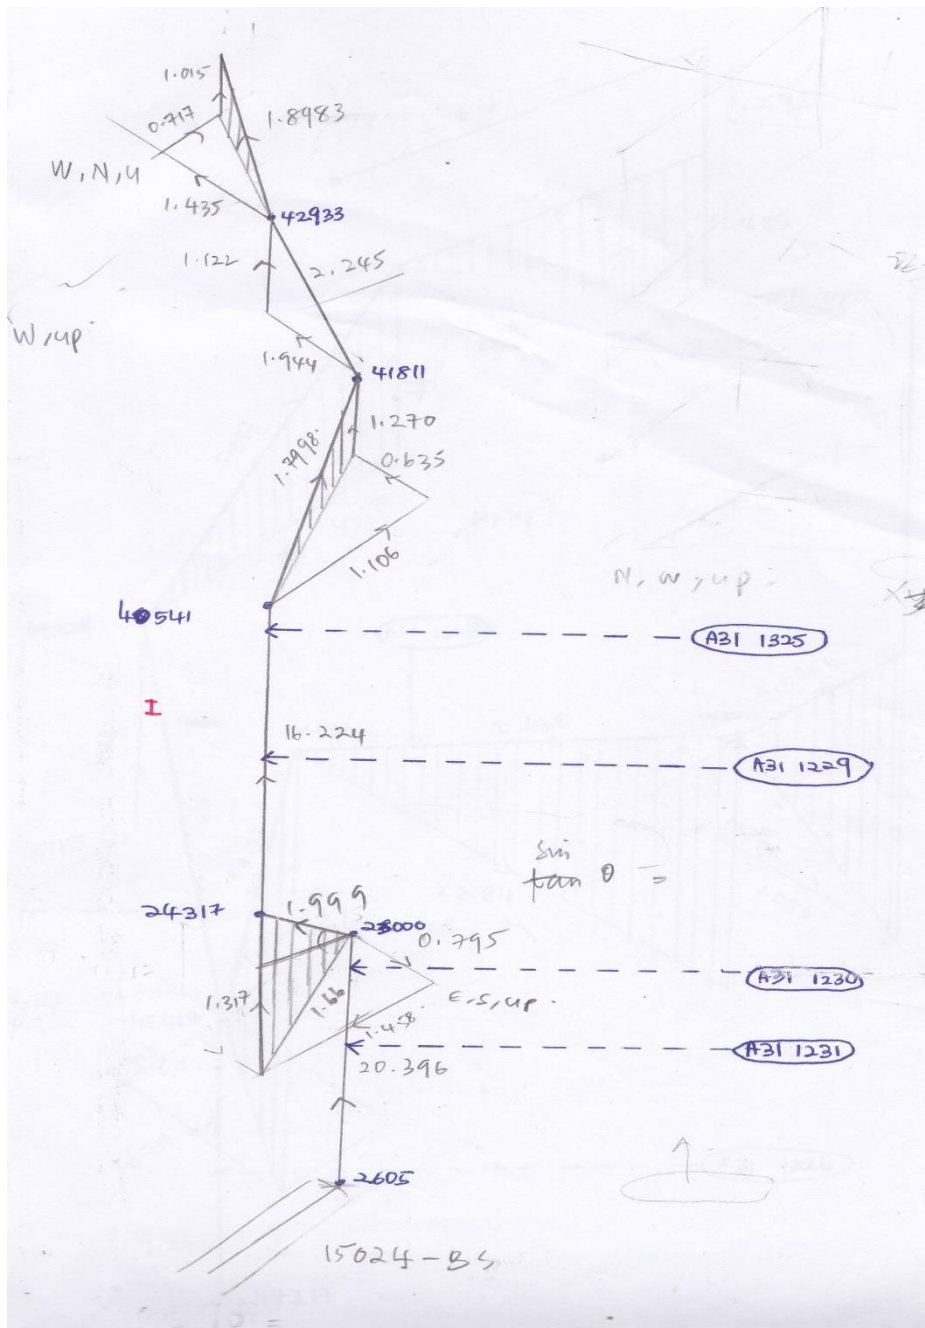 1.015
0.717
1.8983
W, N, U
1.435
42933
1.122
2.245
W, up
1.944
41811
1.270
1.7998
0.635
1.106
N, W, up.
40541
A31 1325
I
16.224
A31 1229
sin
tan θ =
24317
1.999
23000
0.795
A31 1230
1.317
1.66
E, S, up.
1.458
A31 1231
20.396
2605
15024-BS